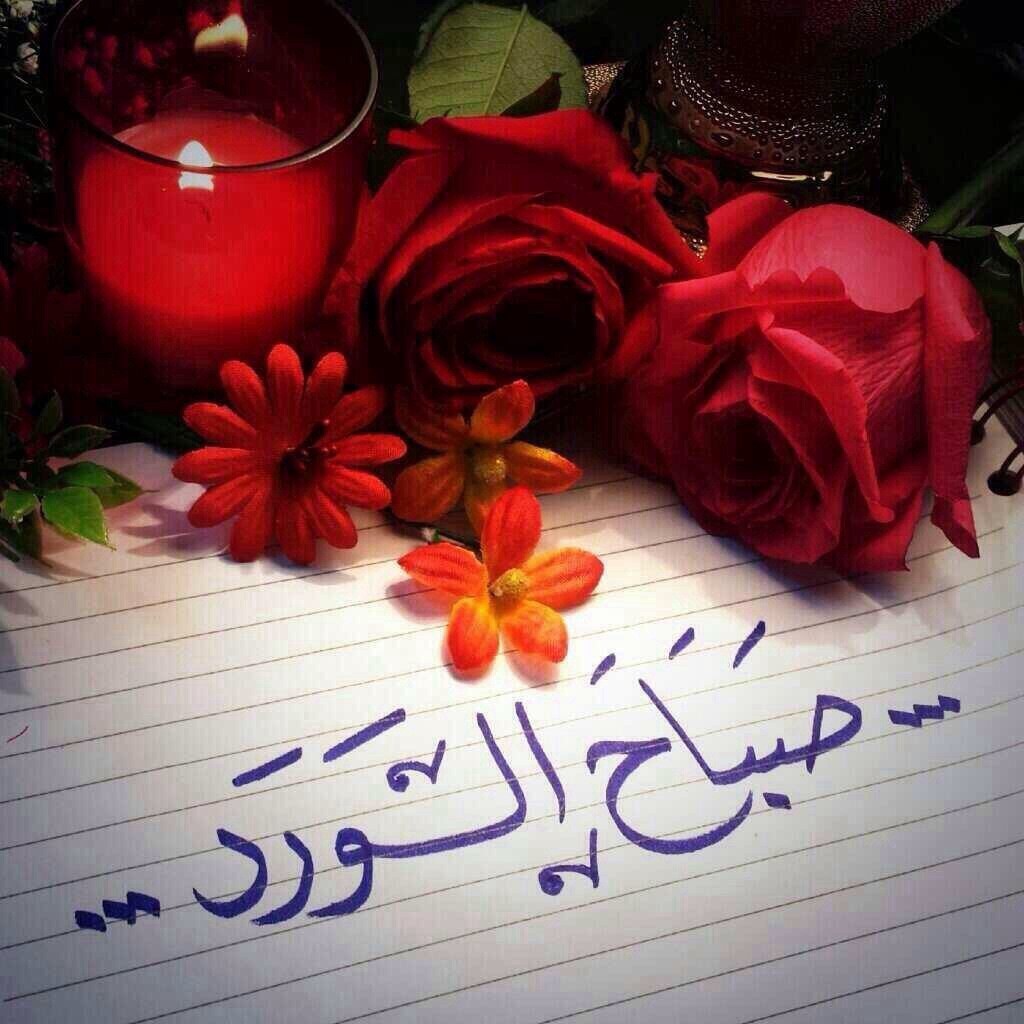 ... صَبَاحَ الوَرَدَ ...